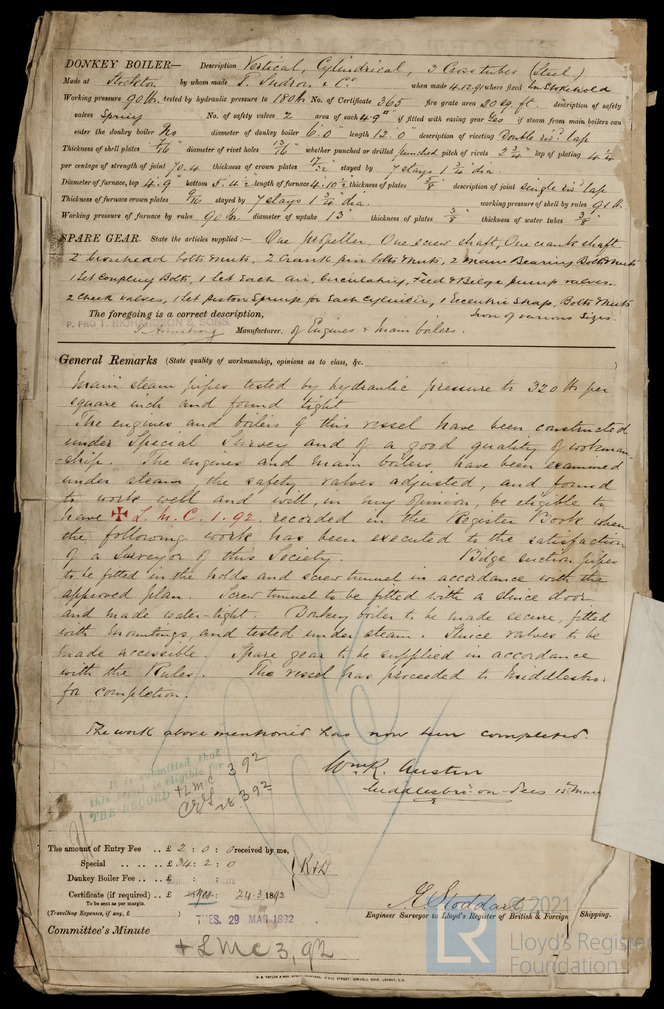 DONKEY BOILER— Description Vertical, Cylindrical, 3 Cross tubes (Steel)
Made at Stockton by whom made T. Sudron & Co. when made 4.12.91 where fixed In Stokehold
Working pressure 90 lb. tested by hydraulic pressure to 180 lb No. of Certificate 365 fire grate area 20 sq. ft. description of safety
valves Spring No. of safety valves 2 area of each 4.9" if fitted with easing gear Yes if steam from main boilers can
enter the donkey boiler No diameter of donkey boiler 6'.0" length 12'.0" description of riveting Double riv. lap
Thickness of shell plates 7/16" diameter of rivet holes 13/16" whether punched or drilled punched pitch of rivets 2 3/4" lap of plating 4 1/4
per centage of strength of joint 70.4 thickness of crown plates 17/32" stayed by 7 stays 1 3/4" dia.
Diameter of furnace, top 4'.9" bottom 5'.4 1/2" length of furnace 4'.10 1/2" thickness of plates 5/8" description of joint single riv. lap
Thickness of furnace crown plates 9/16" stayed by 7 stays 1 3/4" dia. working pressure of shell by rules 91 lb.
Working pressure of furnace by rules 90 lb. diameter of uptake 13" thickness of plates 3/8" thickness of water tubes 3/8"
SPARE GEAR. State the articles supplied:— One propeller, One screw shaft, One crank shaft
2 Crosshead bolts & nuts, 2 Crank pin bolts & nuts, 2 Main Bearing Bolts & nuts
1 Set Coupling Bolts, 1 Set each Air, Circulating, Feed & Bilge pump valves.
2 Check valves, 1 Set piston Springs for each Cylinder, 1 Eccentric Strap, Bolts & Nuts
The foregoing is a correct description, Iron of various sizes.
P. PRO T. RICHARDSON & SONS.
J. Armstrong Manufacturer. of Engines & Main boilers.
General Remarks (State quality of workmanship, opinions as to class, &c.
Main steam pipes tested by hydraulic pressure to 320 lb per
square inch and found tight
The engines and boilers of this vessel have been constructed
under Special Survey and of a good quality of workman-
-ship. The engines and main boilers, have been examined
under steam, the safety valves adjusted, and found
to work well and will, in my opinion, be eligible to
have ✠ L.M.C. 1.92. recorded in the Register Book when
the following work has been executed to the satisfaction
of a Surveyor of this Society. Bilge suction pipes
to be fitted in the holds and screw tunnel in accordance with the
approved plan. Screw tunnel to be fitted with a sluice door
and made water-tight. Donkey boiler to be made secure, fitted
with mountings, and tested under steam. Sluice valves to be
made accessible. Spare gear to be supplied in accordance
with the Rules. The vessel has proceeded to Middlesbro.
for completion.
The work above mentioned has now been completed.
Wm R. Austin
Middlesbro'-on-Tees 15th Mar
It is submitted that
this vessel is eligible for
THE RECORD + LMC 3.92
28.3.92
The amount of Entry Fee .. £ 2 : 0 : 0 received by me,
Special .. .. .. £ 34 : 2 : 0
Donkey Boiler Fee .. £ : :
Certificate (if required) .. £ : : 24.3.1892
To be sent as per margin.
(Travelling Expenses, if any, £ )
TUES. 29 MAR 1892
Committee's Minute
+ LMC 3,92
H. Stoddart
Engineer Surveyor to Lloyd's Register of British & Foreign Shipping.
2021
LR Lloyd's Register
Foundation